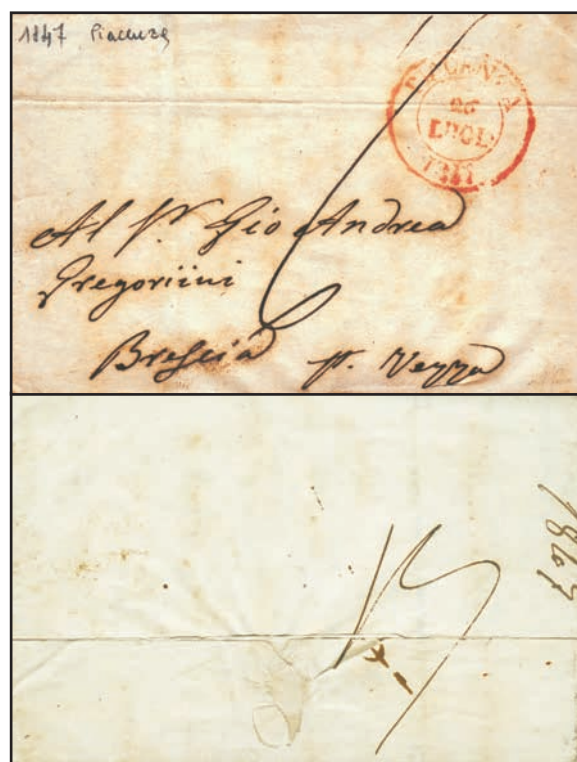 1847 Piacenza
PIACENZA
26
LUGL.
1847
Al Sr. Gio Andrea
Gregoriini
Brescia p. Vezza
6
13
1847